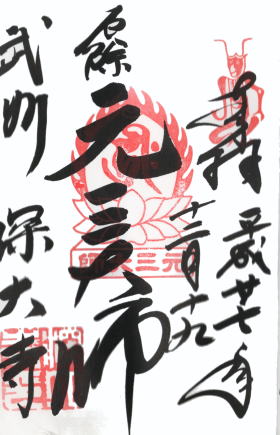 奉拝
平成廿七年
十二月十九
厄除
元三大師
武州
深大寺
元三大師